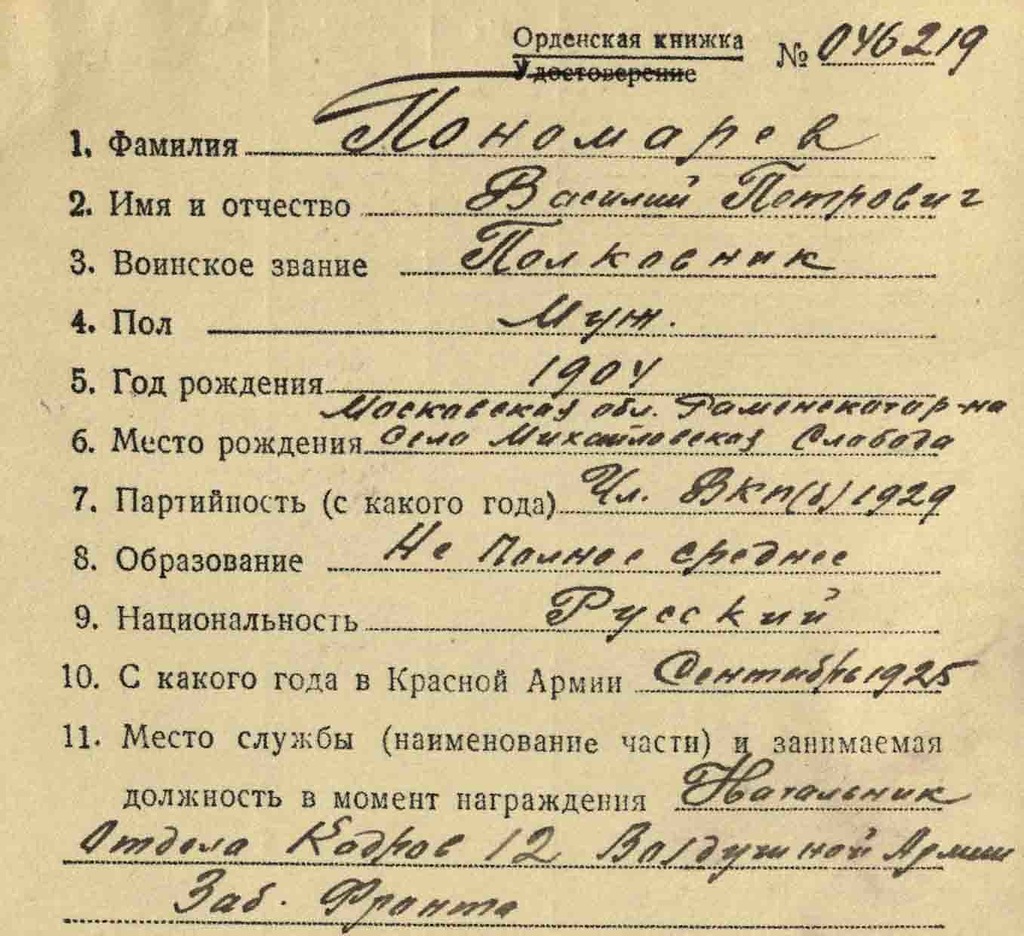 Орденская книжка № 046219
Удостоверение
1. Фамилия Пономарев
2. Имя и отчество Василий Петрович
3. Воинское звание Полковник
4. Пол Муж.
5. Год рождения 1904
Московская обл. Раменского р-на
6. Место рождения Село Михайловская Слобода
7. Партийность (с какого года) Чл. ВКП(б) 1929
8. Образование Не полное среднее
9. Национальность Русский
10. С какого года в Красной Армии Сентябрь 1925
11. Место службы (наименование части) и занимаемая
должность в момент награждения Начальник
Отдела Кадров 12 Воздушной Армии
Заб. Фронта